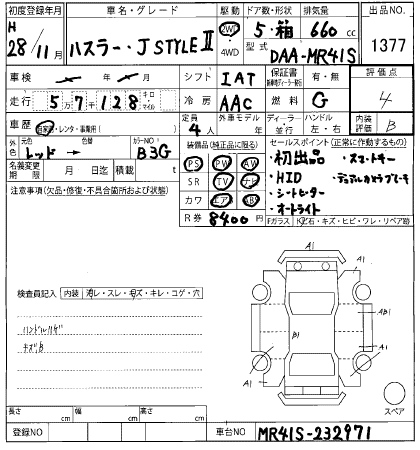 初度登録年月 車名・グレード 駆動 ドア数・形状 排気量 出品NO.
H 28/11月 ハスラー・JSTYLEⅡ 2WD 4WD 5・箱 660cc 1377
型式 DAA-MR41S
車検 年 月 シフト IAT 保証書 有・無 評価点
走行 5万7千128 キロ マイル 冷房 AAC 燃料 G 4
車歴 自家用・レンタ・事業用( ) 定員 4人 外車モデル 年 ディーラー 並行 ハンドル 左・右 内装評価 B
外色 元色 レッド→ 色替 カラーNO. B3G
装備品(純正品に限る) セールスポイント(正常に作動するもの)
名義変更期限 月 日迄 積載 t
PS PW AW
・初出品 ・スマートキー
SR TV ナビ
・HID ・デュアルカメラブレーキ
・シートヒーター
カワ エアB ABS
・オートライト
注意事項(欠品・修復・不具合箇所および状態)
R券 8400円
Fガラス 石・キズ・ヒビ・ワレ・リペア跡
A1
A1
検査員記入 内装 スレ・キズ・キレ・コゲ・穴
AB1
ハンドルハゲ
B1
A1
キズB
A1
スペア
長さ cm 幅 cm 高さ cm
登録NO 車台NO MR41S-232971